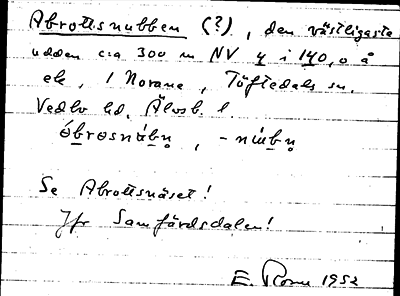 Abrottsnubben (?), den västligaste
udden c:a 300 m NV y i 140,0 å
ek, i Norane, Töftedals sn.
Vedbo hd. Älvsb. l.
óbrosnábn̥, -nibn̥
Se Abrottsnäset!
Jfr Samfärdsdalen!
E. 1952